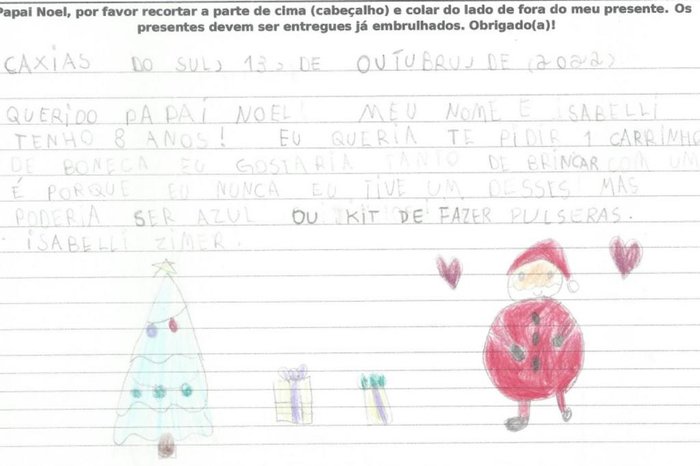 Papai Noel, por favor recortar a parte de cima (cabeçalho) e colar do lado de fora do meu presente. Os
presentes devem ser entregues já embrulhados. Obrigado(a)!
CAXIAS DO SUL, 13, DE OUTUBRU, DE (2022)
QUERIDO PAPAI NOEL! MEU NOME E ISABELLI
TENHO 8 ANOS! EU QUERIA TE PIDIR 1 CARRINHO
DE BONECA EU GOSTARIA TANTO DE BRINCAR COM UM
É PORQUE EU NUNCA EU TIVE UM DESSES MAS
PODERIA SER AZUL OU KIT DE FAZER PULSERAS.
ISABELLI ZIMER.